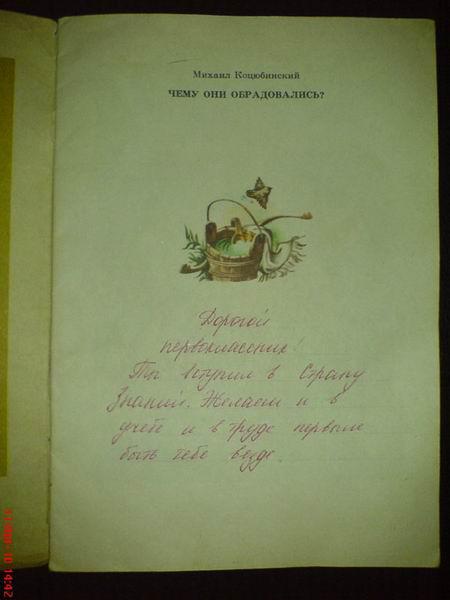 Михаил Коцюбинский
ЧЕМУ ОНИ ОБРАДОВАЛИСЬ?
Дорогой
первоклассник!
Ты вступил в Страну
Знаний. Желаем и в
учебе и в труде первым
быть тебе везде.
14:42